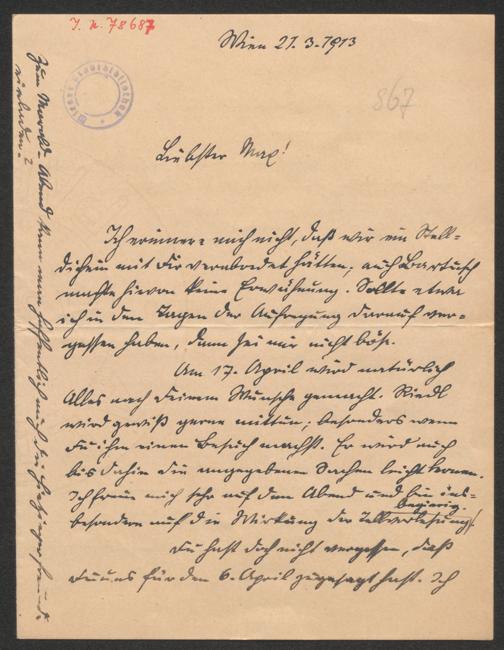 J. N. 78687
Wien 21.3.1913
Wiener Stadtbibliothek
867
Liebster Max!
Ich erinnere mich nicht, daß wir ein Stell-
dichein mit Dir verabredet hätten; auch Bartusch
machte hievon keine Erwähnung. Sollte etwa
ich in den Tagen der Aufregung darauf ver-
gessen haben, dann sei mir nicht böse.
Am 17. April wird natürlich
Alles nach Deinem Wunsche gemacht. Riedl
wird gewiß gerne mittun; besonders wenn
Du ihm einen Besuch machst. Er wird auch
bis dahin die angegebenen Sachen leicht lernen.
Ich freue mich sehr auf den Abend und bin ins-
besondere auf die Wirkung der
begierig.
Du hast doch nicht vergessen, daß
Du uns für den 6. April zugesagt hast. Ich
Zum Morold-Abend kann man hoffentlich auch die